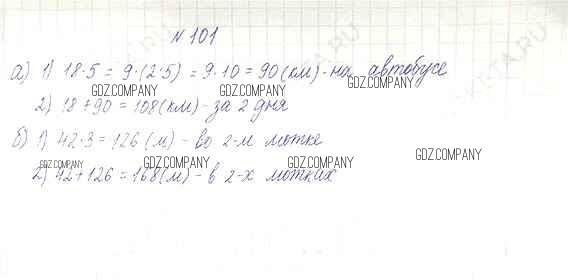 №101
а) 1) 18·5 = 9·(2·5) = 9·10 = 90 (км) - на автобусе
GDZ.COMPANY GDZ.COMPANY GDZ.COMPANY
2) 18+90 = 108 (км) - за 2 дня
б) 1) 42·3 = 126 (м) - во 2-м мотке
GDZ.COMPANY GDZ.COMPANY GDZ.COMPANY GDZ.COMPANY
2) 42+126 = 168 (м) - в 2-х мотках